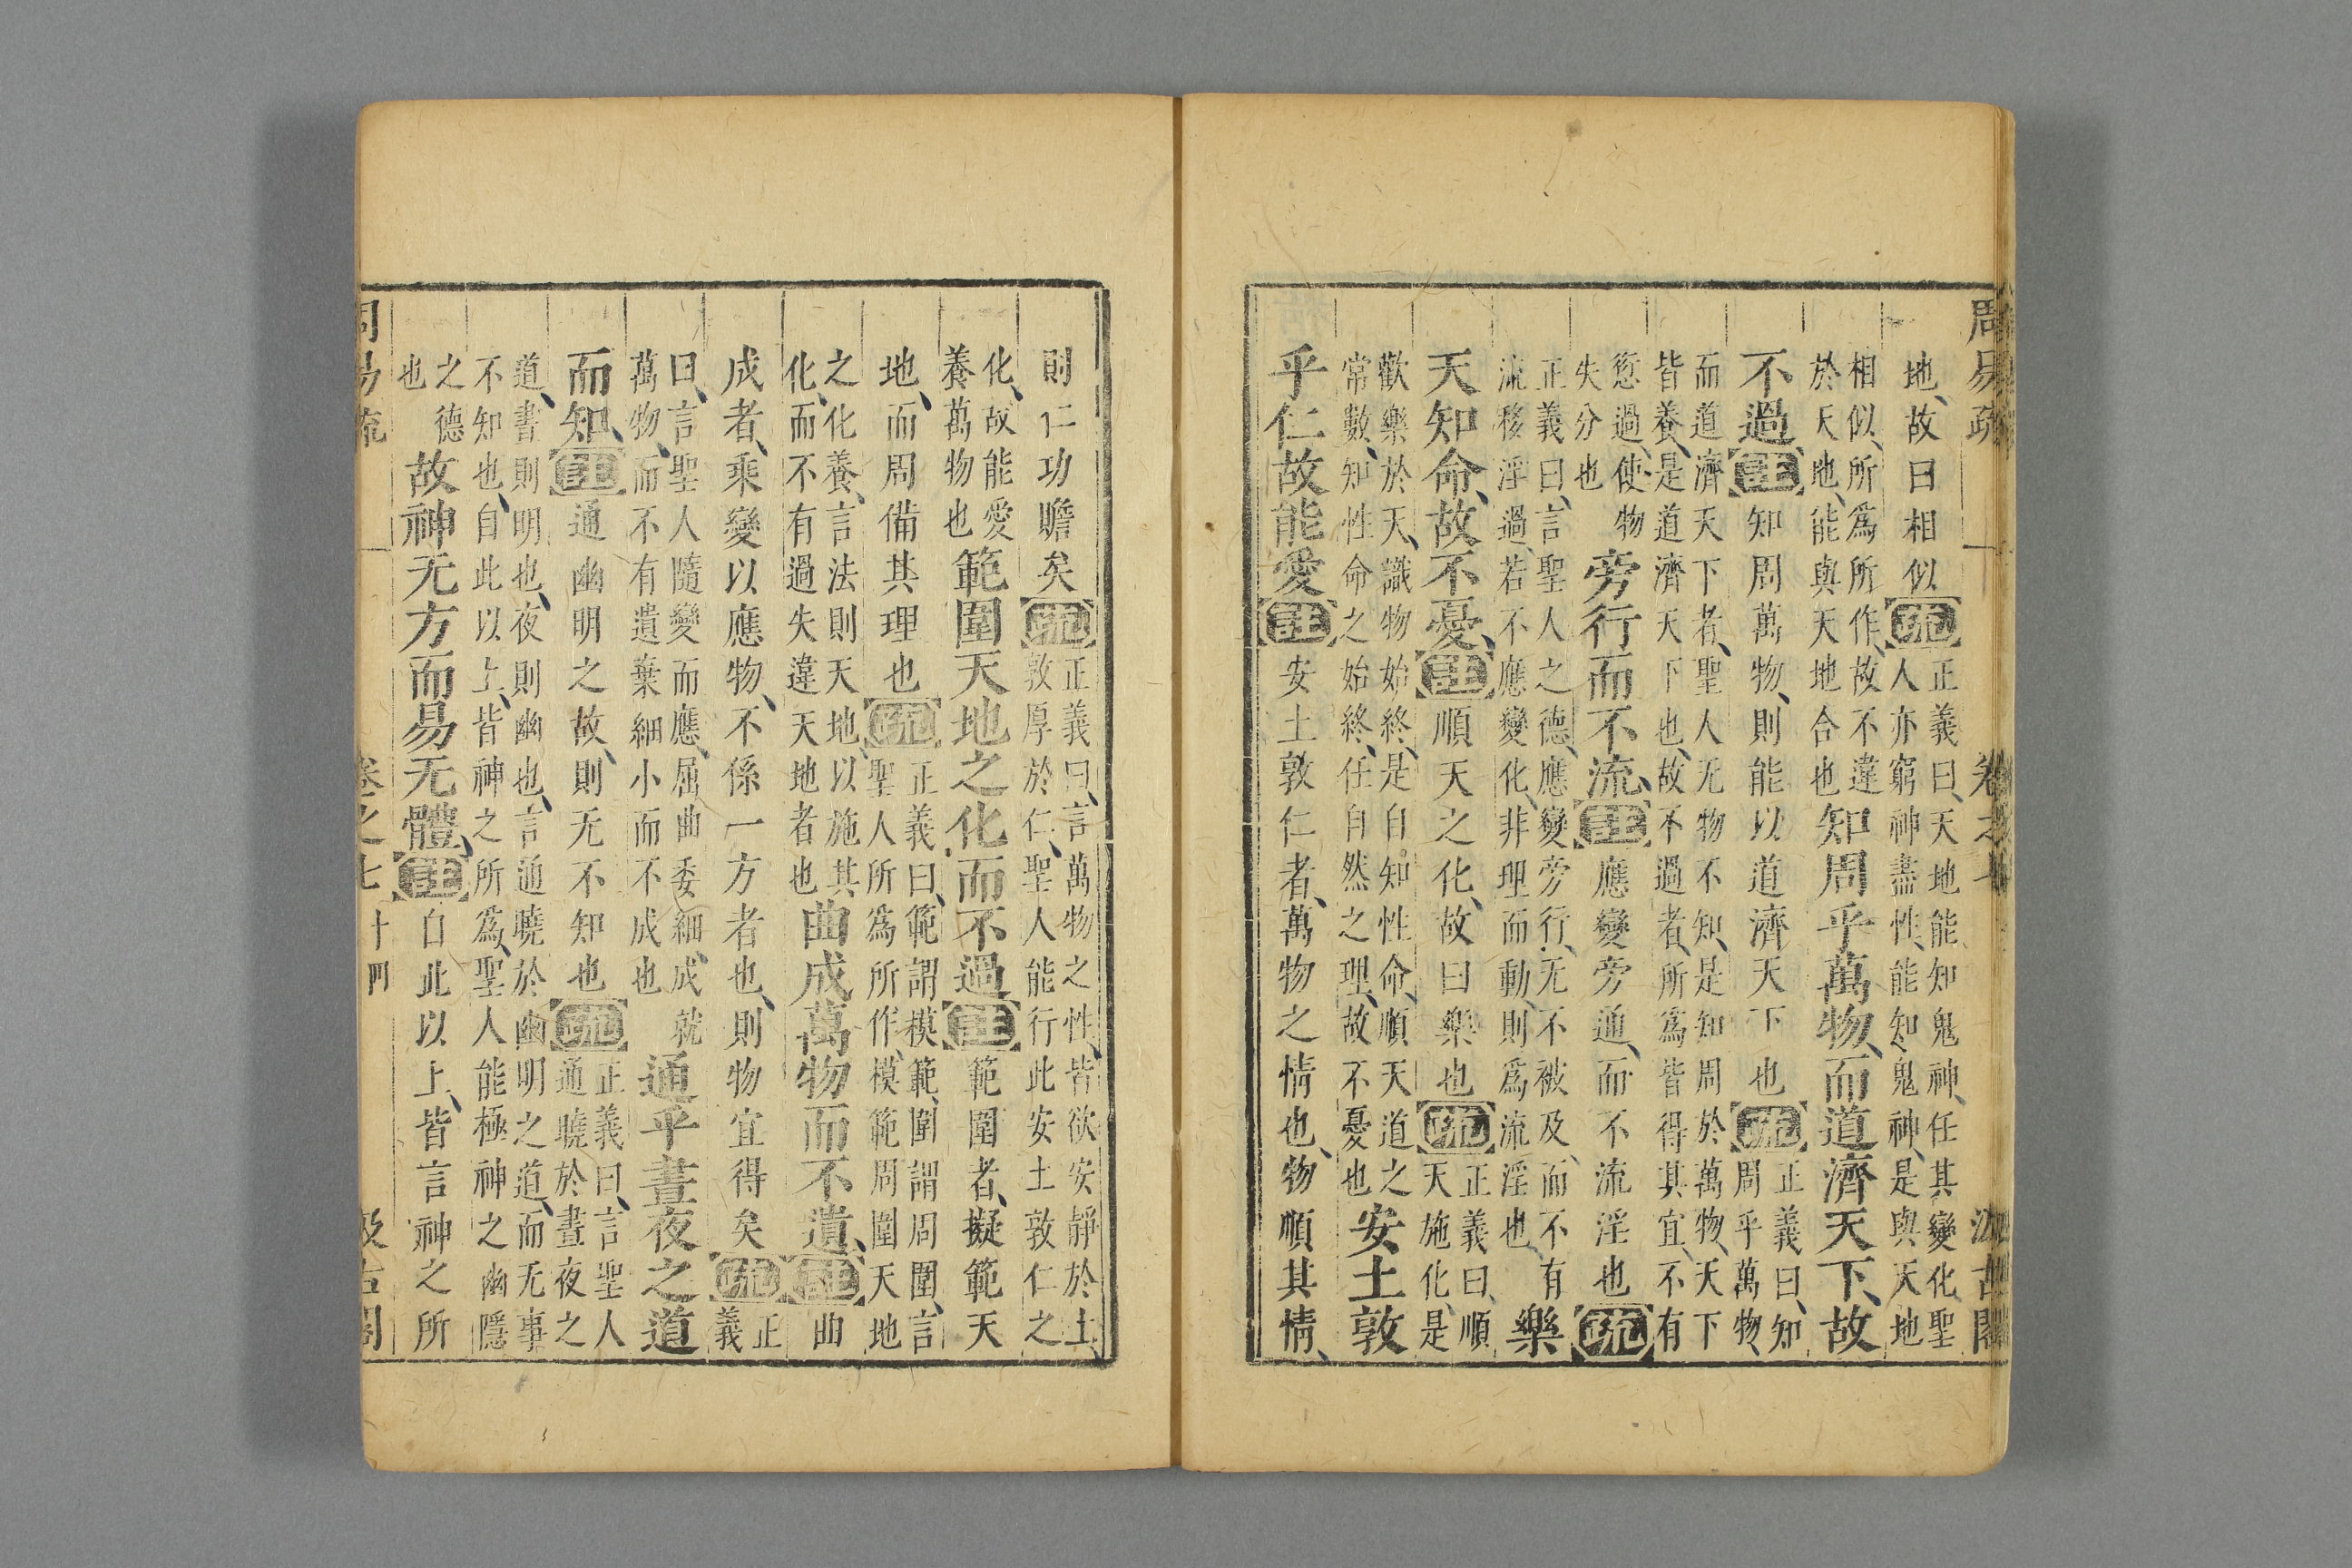 周易疏 卷之七 汲古閣
地、故曰相似疏正義曰、天地能知鬼神、任其變化聖
人亦窮神盡性、能知鬼神、是與天地
相似、所爲所作、故不違
於天地、能與天地合也知周乎萬物、而道濟天下、故
不過註知周萬物、則能以道濟天下也疏正義曰、知
周乎萬物、
而道濟天下者、聖人无物不知、是知周於萬物、天下
皆養、是道濟天下也、故不過者、所爲皆得其宜、不有
愆過、使物
失分也旁行而不流、註應變旁通、而不流淫也疏
正義曰、言聖人之德、應變旁行、无不被及、而不有
流移淫過、若不應變化、非理而動、則爲流淫也樂
天知命、故不憂、註順天之化、故曰樂也疏正義曰、順
天施化、是
歡樂於天、識物始終、是自知性命、順天道之
常數、知性命之始終、任自然之理、故不憂也安土敦
乎仁故能愛註安土敦仁者、萬物之情也、物順其情、
則仁功贍矣疏正義曰、言萬物之性、皆欲安靜於土、
敦厚於仁、聖人能行此安土敦仁之
化、故能愛
養萬物也範圍天地之化而不過註範圍者、擬範天
地、而周備其理也疏正義曰、範謂模範、圍謂周圍、言
聖人所爲所作、模範周圍天地
之化養、言法則天地、以施其
化、而不有過失違天地者也曲成萬物而不遺、註曲
成者、乘變以應物、不係一方者也、則物宜得矣疏正
義
曰、言聖人隨變而應、屈曲委細、成就
萬物、而不有遺棄細小而不成也通乎晝夜之道
而知、註通幽明之故、則无不知也疏正義曰、言聖人
通曉於晝夜之
道、晝則明也、夜則幽也、言通曉於幽明之道、而无事
不知也、自此以上、皆神之所爲、聖人能極神之幽隱
之德
也故神无方而易无體、註自此以上、皆言神之所
周易疏 卷之七 十四 汲古閣